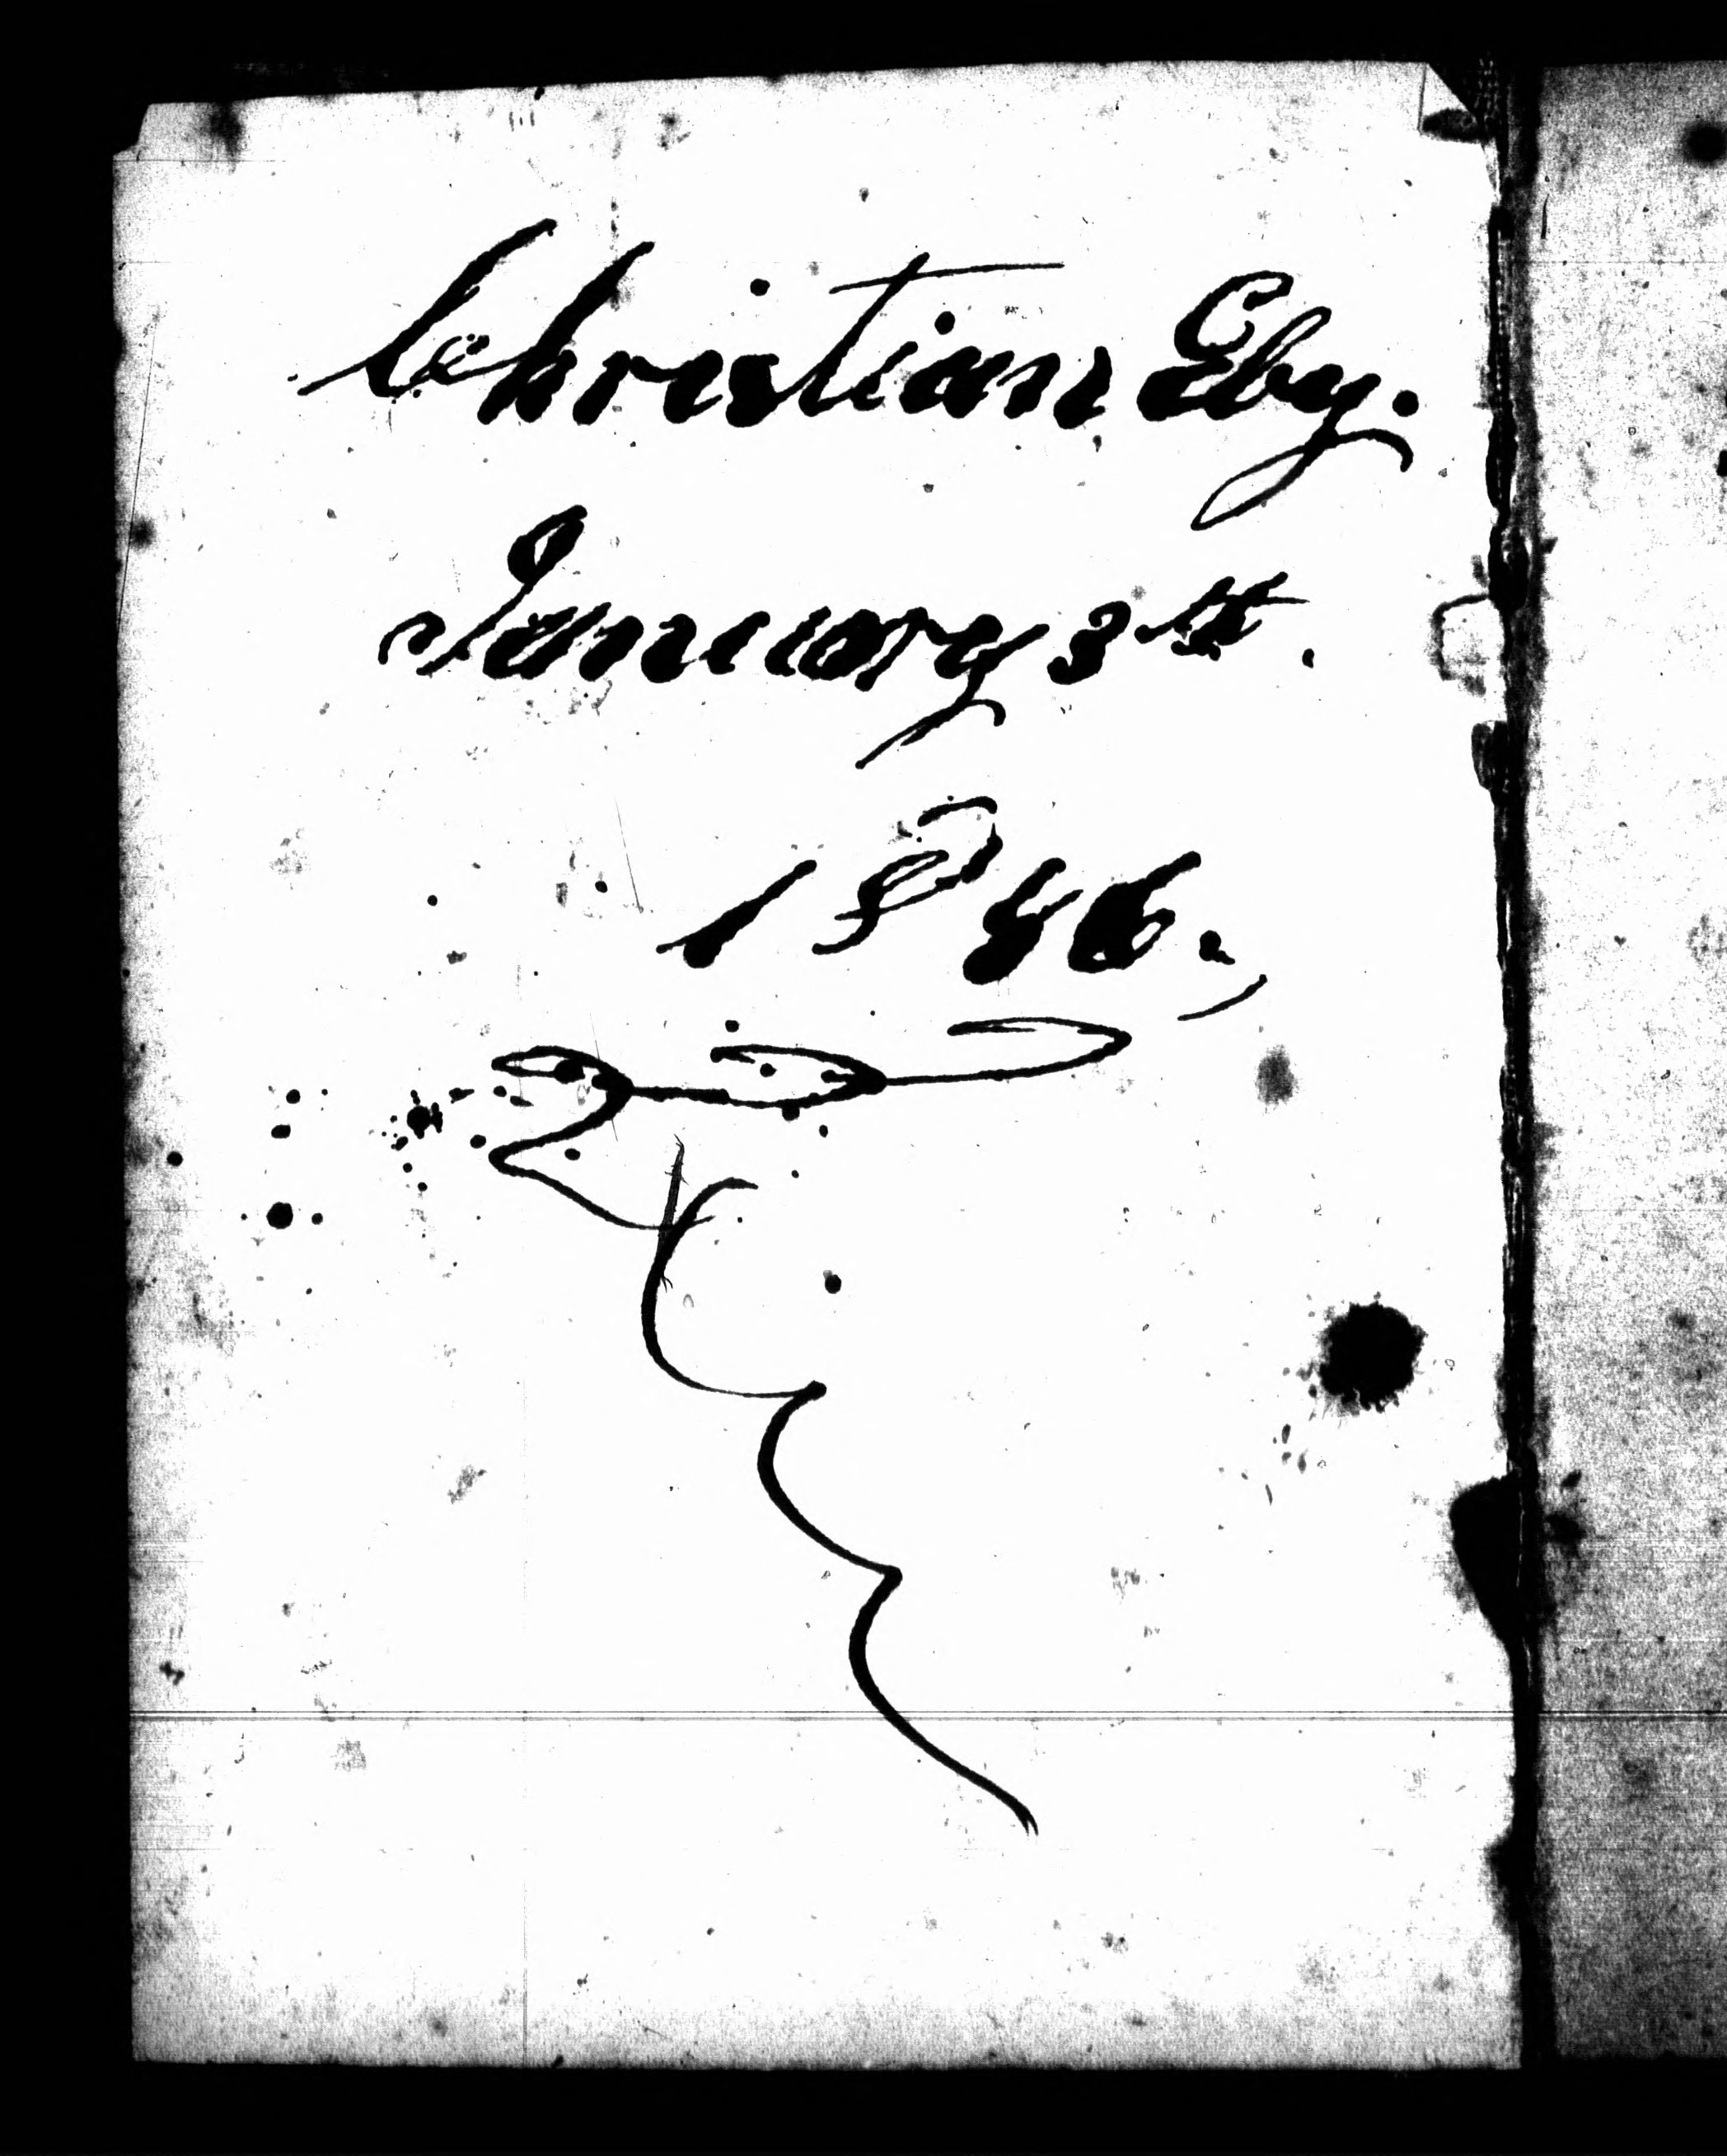 Christian Eby.
January 3th.
1846.